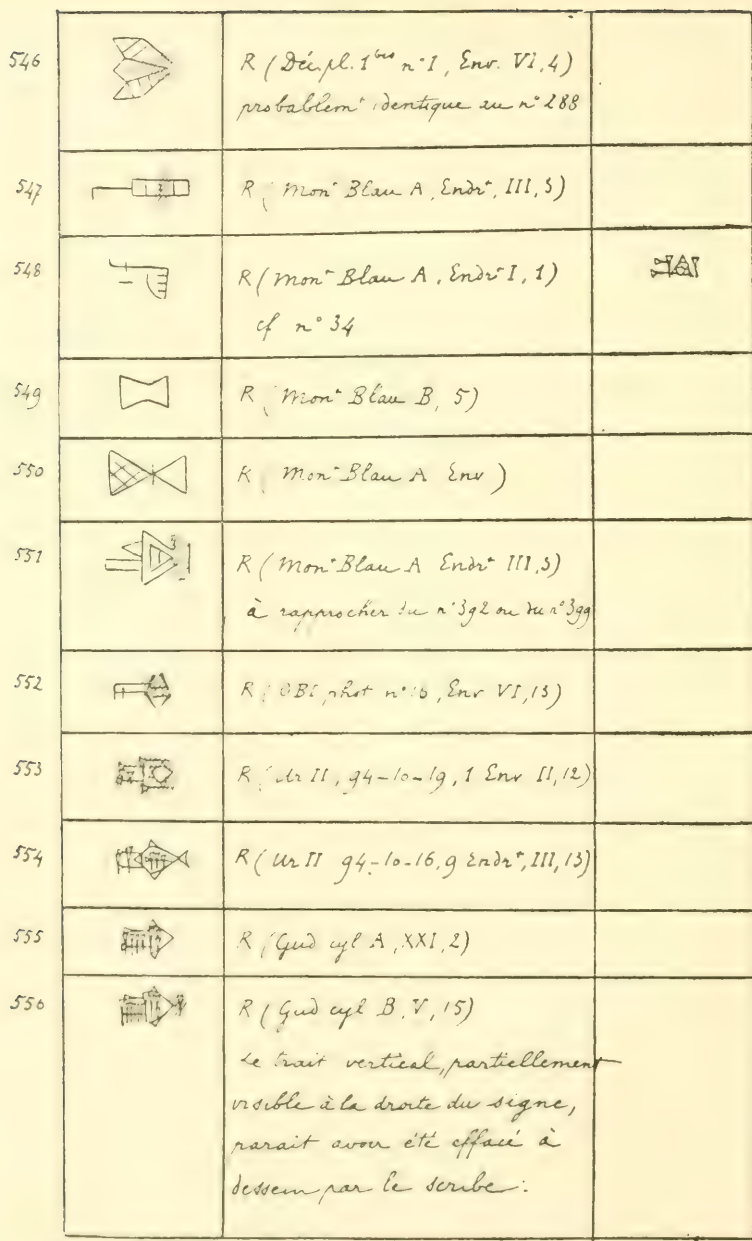 546 R (Déc. pl. 1 bis n° 1, Env. VI, 4)
probablemt identique au n° 288
547 R (Mont Blau A, Endrt, III, 3)
548 R (Mont Blau A, Endrt I, 1)
cf n° 34
549 R (Mont Blau B, 5)
550 R (Mont Blau A Env)
551 R (Mont Blau A Endrt III, 3)
à rapprocher du n° 392 ou du n° 399
552 R (OBI, phot n° 16, Env VI, 13)
553 R (Ur II, 94-10-19, 1 Env II, 12)
554 R (Ur II 94-10-16, 9 Endrt, III, 13)
555 R (Gud cyl A, XXI, 2)
556 R (Gud cyl B, V, 15)
Le trait vertical, partiellement
visible à la droite du signe,
parait avoir été effacé à
dessein par le scribe.